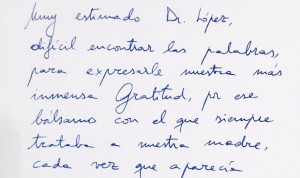 Muy estimado Dr. López,
difícil encontrar las palabras,
para expresarle nuestra más
inmensa Gratitud, pr ese
bálsamo con el que siempre
trataba a nuestra madre,
cada vez que aparecía